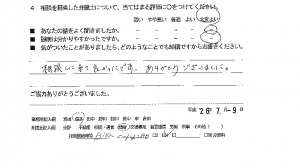 4 相談を担当した弁護士について、当てはまる評価に○をつけてください。
悪い やや悪い 普通 よい 大変よい
■ あなたの話をよく聞きましたか。
■ 説明は分かりやすかったですか。
■ 気がついたことがありましたら、どのようなことでも結構ですからお書き下さい。
相談に来て良かったです。ありがとうございました。
ご協力ありがとうございました。
平成 26年 7月 -9日